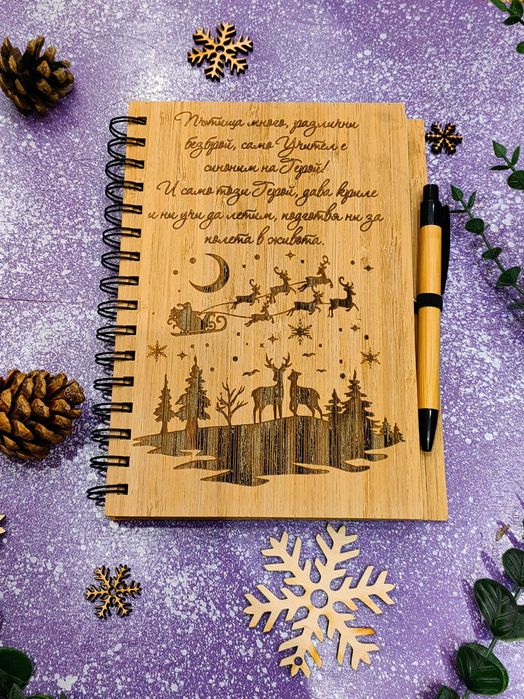 Пътища много, различни
безброй, само Учител е
синоним на Герой!
И само този Герой, дава криле
и ни учи да летим, подготвя ни за
полета в живота.